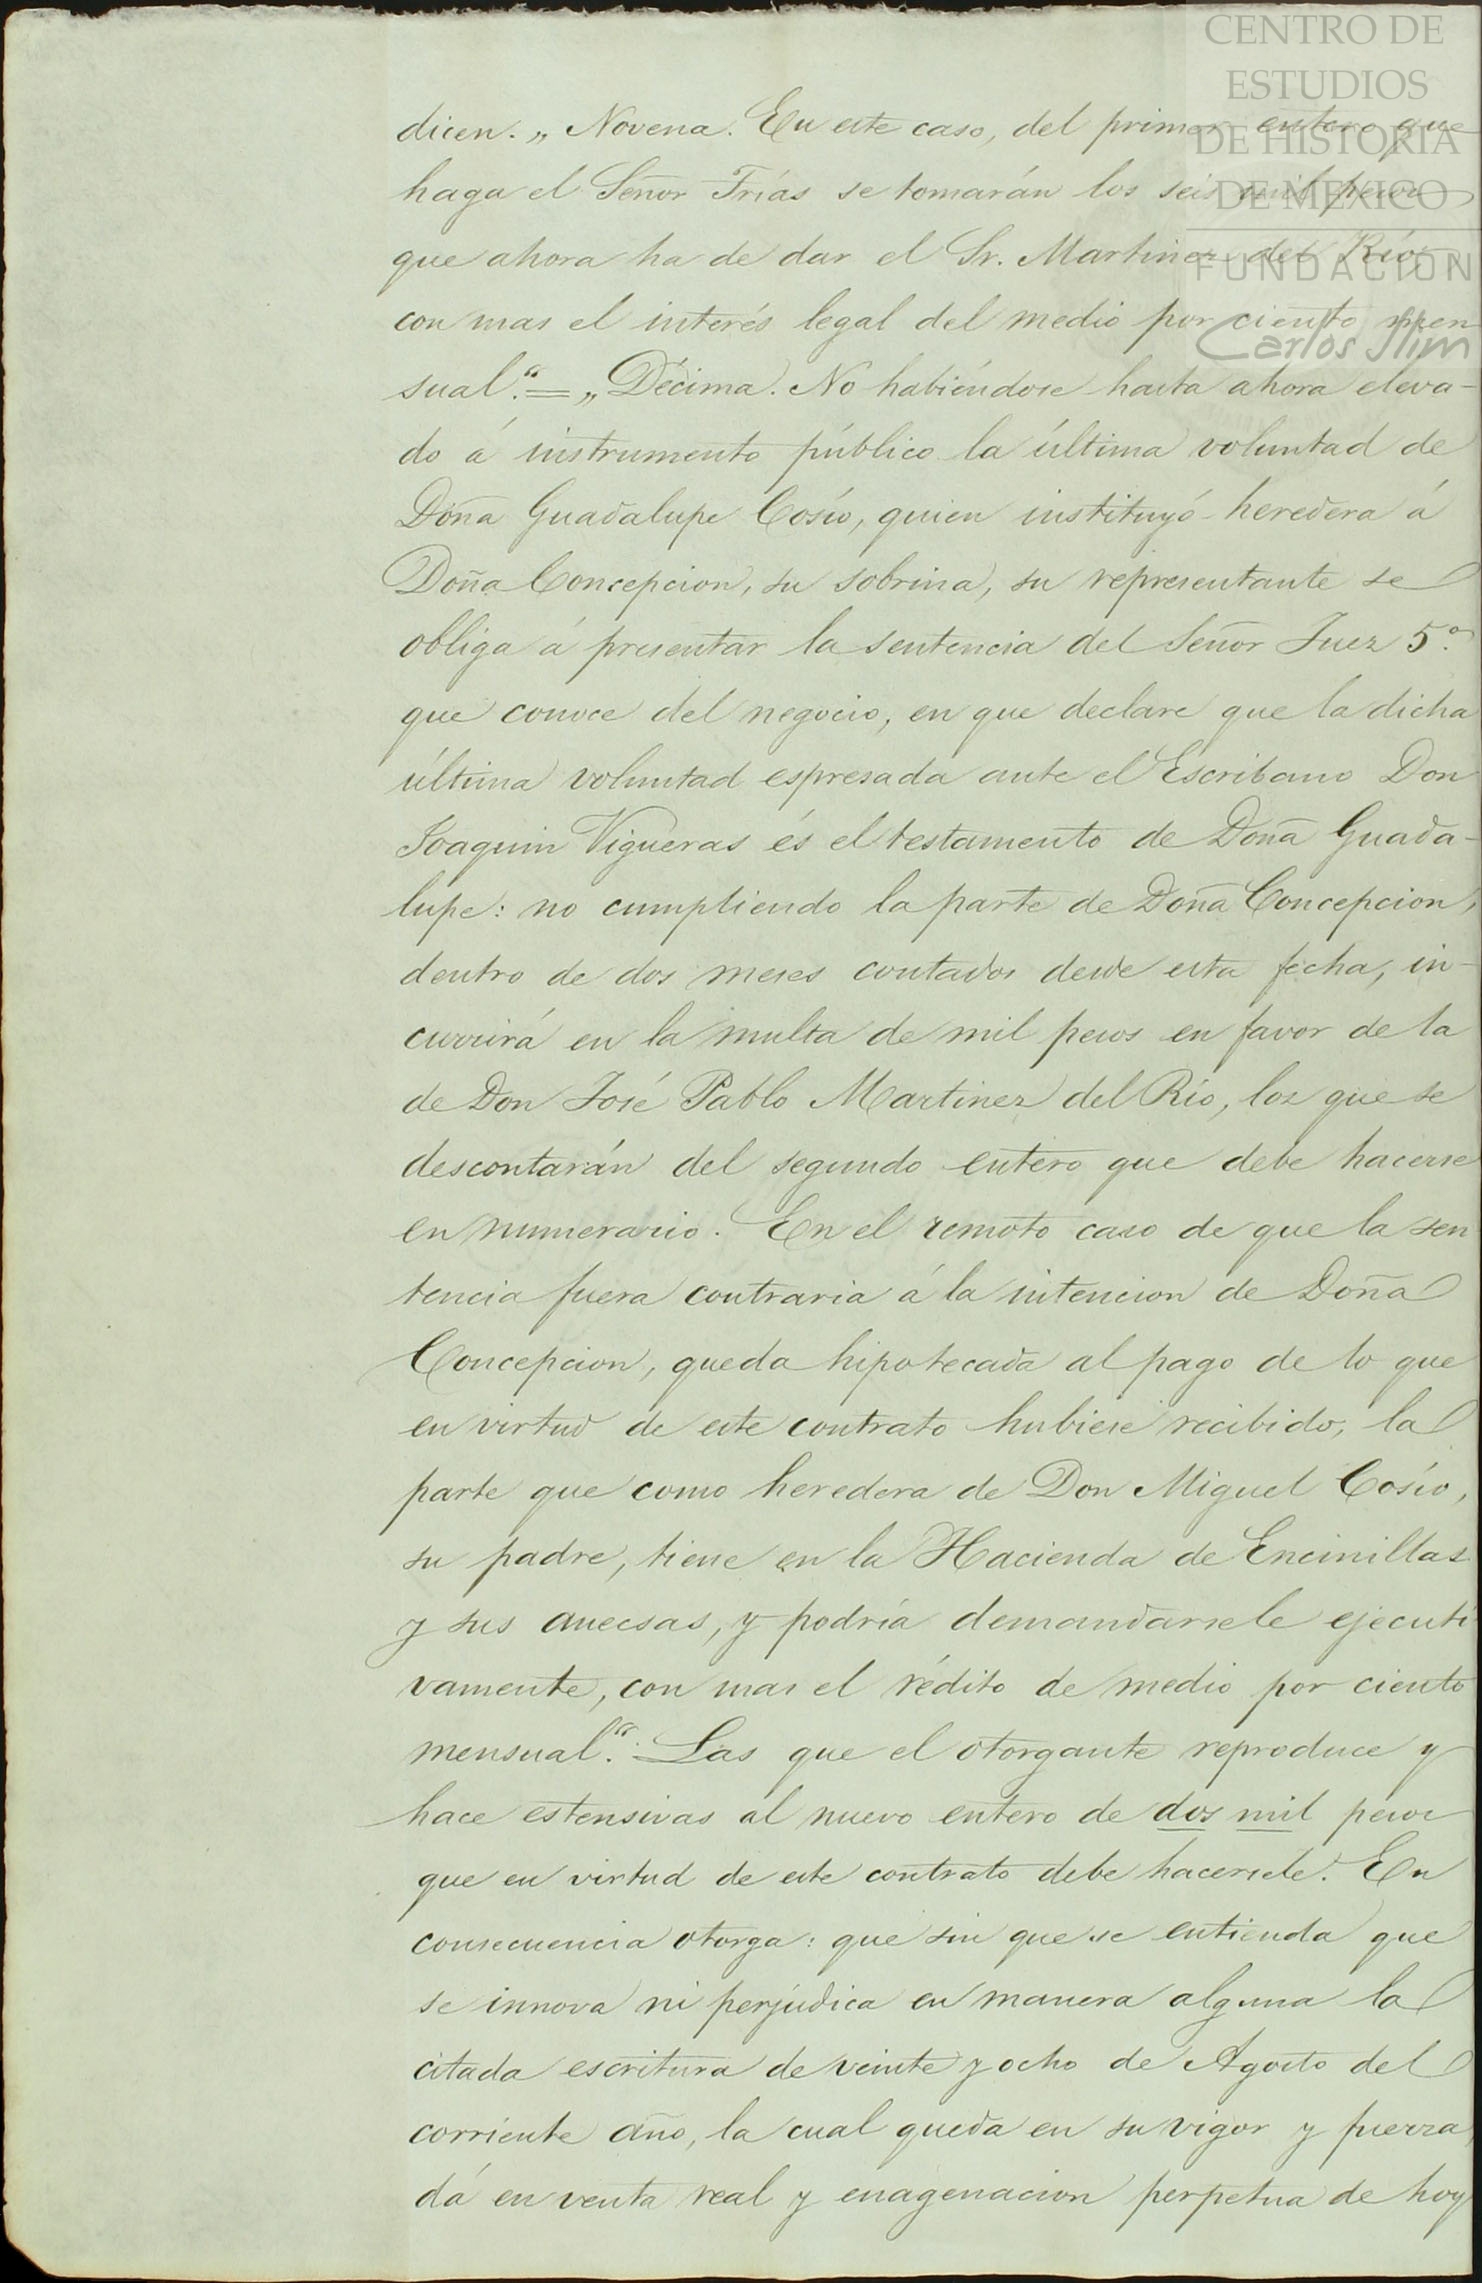 CENTRO DE
ESTUDIOS
DE HISTORIA
DE MEXICO
FUNDACION
Carlos Slim
dicen. „ Novena. En este caso, del primer entero que
haga el Señor Frías se tomarán los seis mil pesos
que ahora ha de dar el Sr. Martinez del Río,
con mas el interés legal del medio por ciento men
sual.“ = „ Décima. No habiéndose hasta ahora eleva-
do á instrumento público la última voluntad de
Doña Guadalupe Cosío, quien instituyó heredera á
Doña Concepcion, su sobrina, su representante se
obliga á presentar la sentencia del Señor Juez 5.º
que conoce del negocio, en que declare que la dicha
última voluntad espresada ante el Escribano Don
Joaquin Vigueras és el testamento de Doña Guada-
lupe: no cumpliendo la parte de Doña Concepcion,
dentro de dos meses contados desde esta fecha, in-
currirá en la multa de mil pesos en favor de la
de Don José Pablo Martinez del Río, los que se
descontarán del segundo entero que debe hacerse
en numerario. En el remoto caso de que la sen
tencia fuera contraria á la intencion de Doña
Concepcion, queda hipotecada al pago de lo que
en virtud de este contrato hubiese recibido, la
parte que como heredera de Don Miguel Cosío,
su padre, tiene en la Hacienda de Encinillas
y sus anecsas, y podría demandarsele ejecuti
vamente, con mas el rédito de medio por ciento
mensual.“ Las que el otorgante reproduce y
hace estensivas al nuevo entero de dos mil pesos
que en virtud de este contrato debe hacersele. En
consecuencia otorga: que sin que se entienda que
se innova ni perjudica en manera alguna la
citada escritura de veinte y ocho de Agosto del
corriente año, la cual queda en su vigor y fuerza,
dá en venta real y enagenacion perpetua de hoy